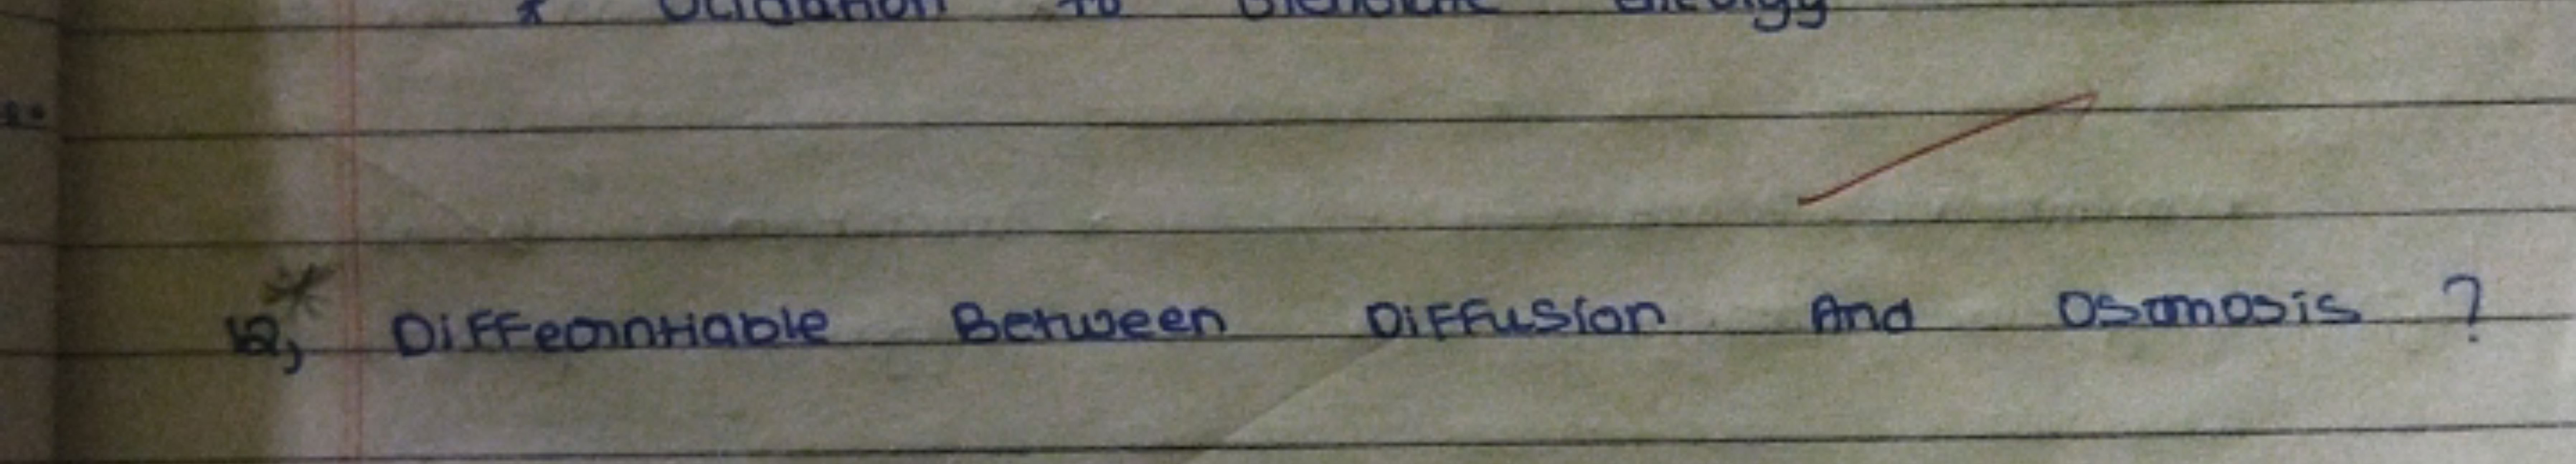 to energy
12, Diffeonntiable Between Diffusion And Osmosis ?